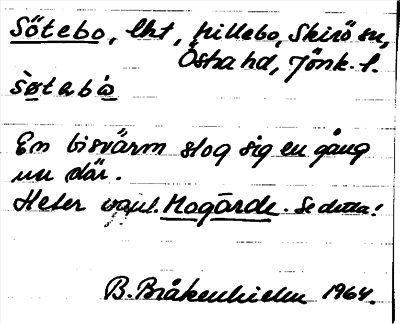 Sötebo, lht, Millebo, Skirö sn,
Östra hd, Jönk. l.
søtabo
En bisvärm slog sig en gång
ner där.
Heter egentl. Hogärde. Se detta!
B. Bråkenhielm 1964.